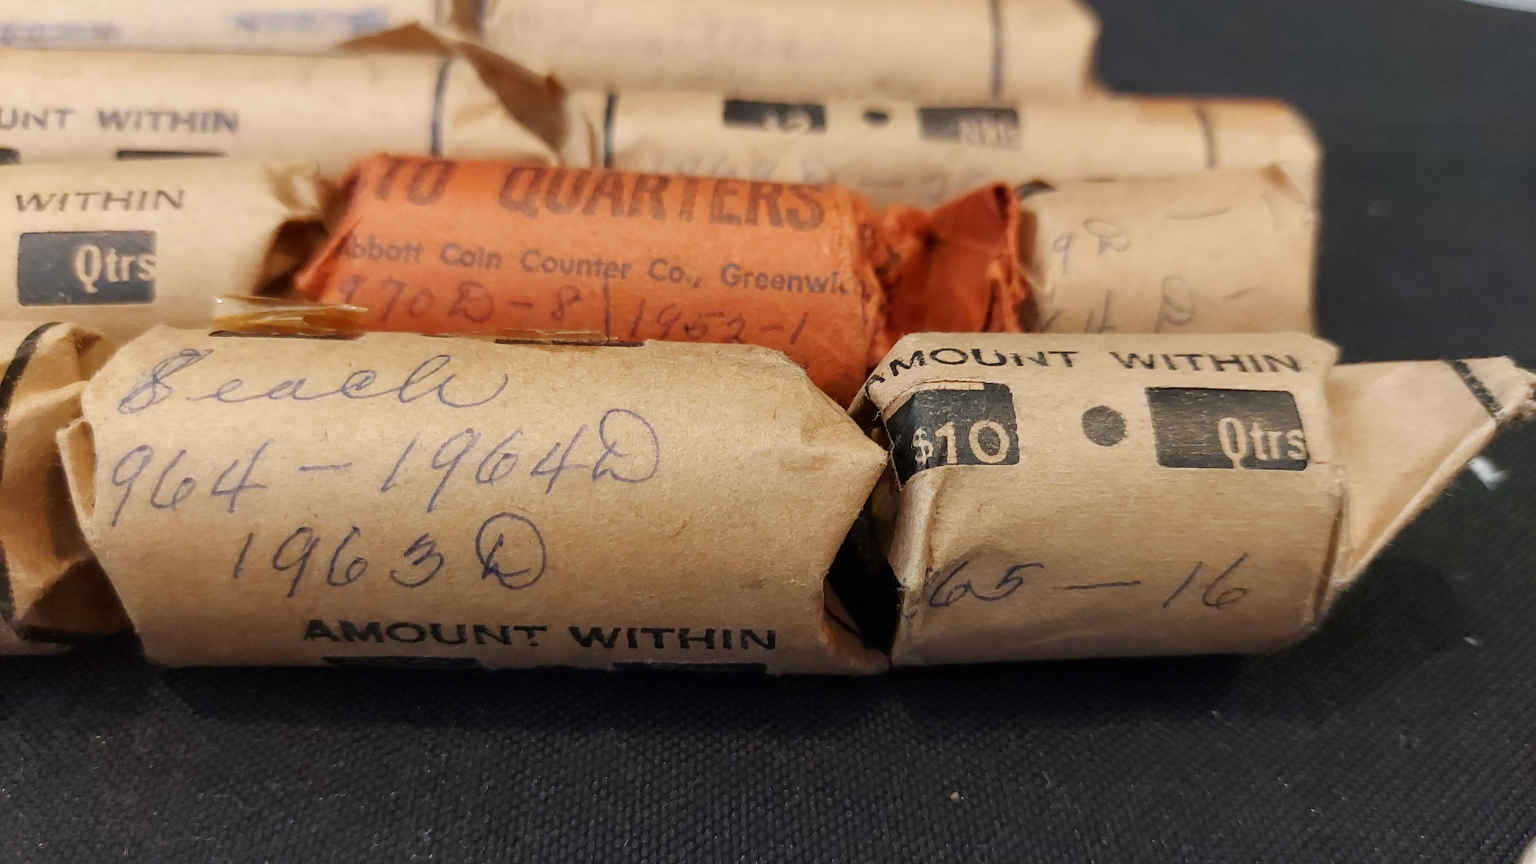 UNT WITHIN
WITHIN
Qtrs
TO QUARTERS
bbott Coin Counter Co., Greenwi
970 D - 8 | 1952-1
9 D -
4 D -
8 each
964 - 1964 D
1963 D
AMOUNT WITHIN
AMOUNT WITHIN
$10 ● Qtrs
65 - 16